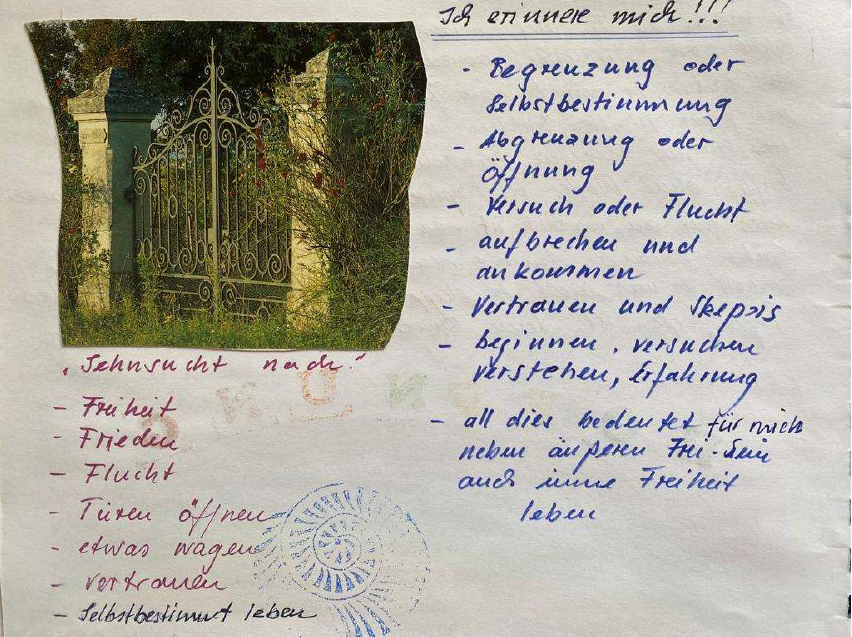 Ich erinnere mich!!!
- Begrenzung oder
Selbstbestimmung
- Abgrenzung oder
Öffnung
- Versuch oder Flucht
- aufbrechen und
ankommen
- Vertrauen und Skepsis
- beginnen, versuchen
verstehen, Erfahrung
- all dies bedeutet für mich
neben äußeren Frei-Sein
auch innere Freiheit
leben
"Sehnsucht nach"
- Freiheit
- Frieden
- Flucht
- Türen öffnen
- etwas wagen
- vertrauen
- Selbstbestimmt leben